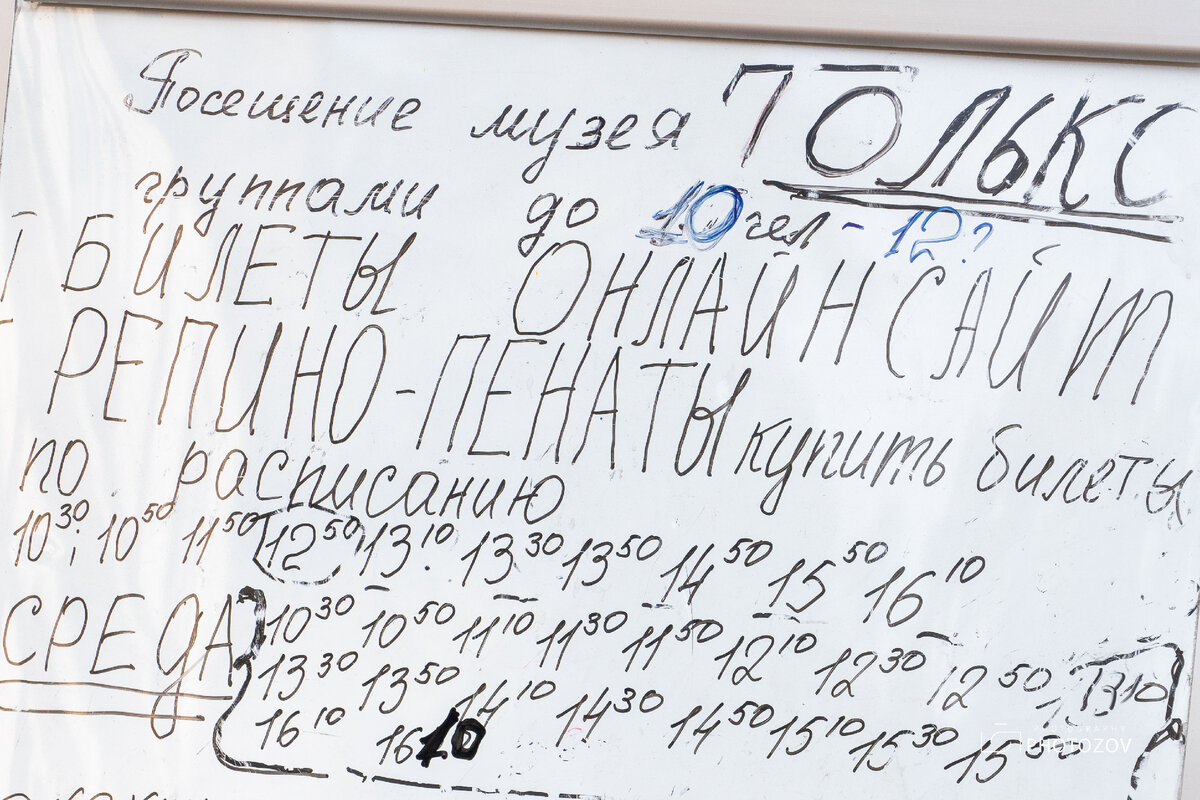 Посещение музея ТОЛЬКО
группами до 10 чел - 12?
БИЛЕТЫ ОНЛАЙН САЙТ
РЕПИНО-ПЕНАТЫ купить билеты
по расписанию
10³⁰; 10⁵⁰ 11⁵⁰ 12⁵⁰ 13¹⁰. 13³⁰ 13⁵⁰ 14⁵⁰ 15⁵⁰ 16¹⁰
СРЕДА 10³⁰ 10⁵⁰ 11¹⁰ 11³⁰ 11⁵⁰ 12¹⁰ 12³⁰ 12⁵⁰ 13¹⁰
13³⁰ 13⁵⁰ 14¹⁰ 14³⁰ 14⁵⁰ 15¹⁰ 15³⁰ 15⁵⁰
16¹⁰ 16 10
PHOTOGRAPHY
PHOTOZOV